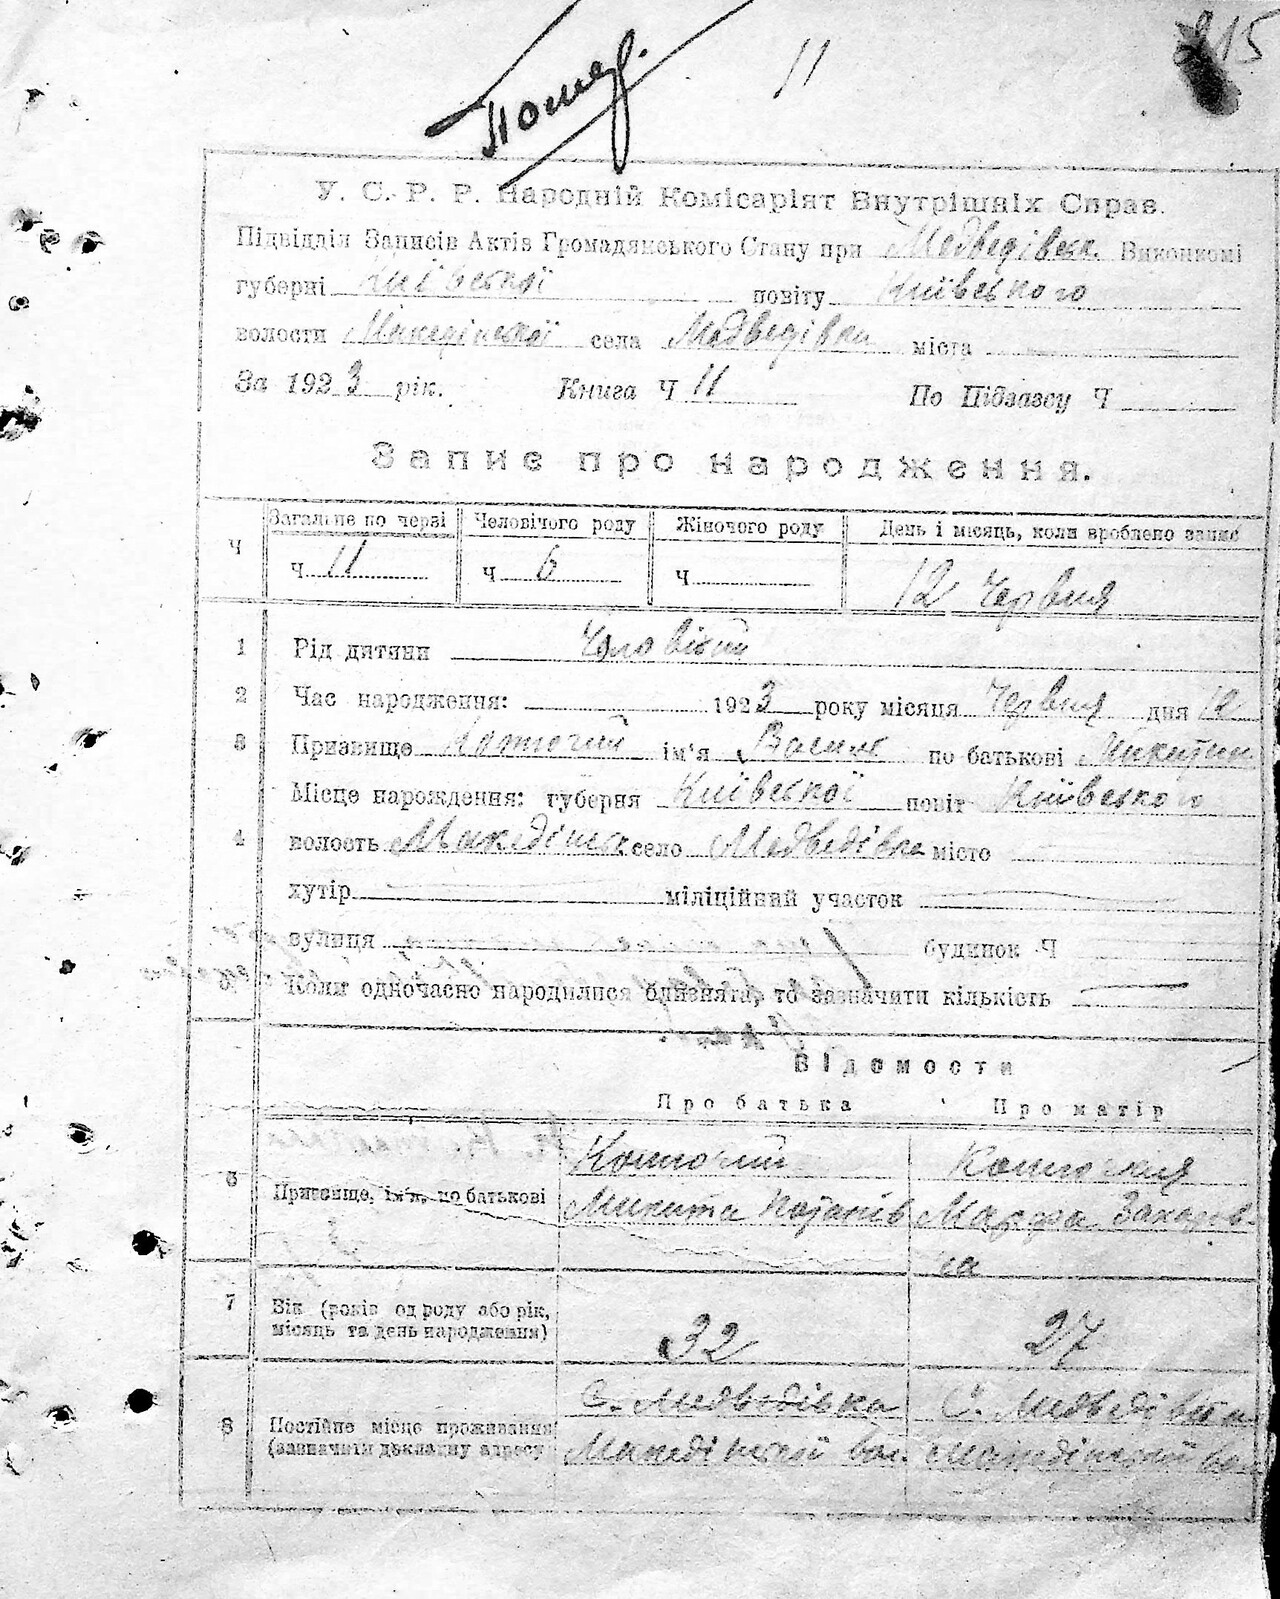 315
11
Помер.
У. С. Р. Р. Народній Комісаріят Внутрішніх Справ.
Підвідділ Записів Актів Громадянського Стану при Медведівськ. Виконкомі
губерні Київської повіту Київського
волости Македінської села Медведівки міста
За 1923 рік. Книга Ч 11 По Підзагсу Ч
Запис про народження.
Загальне по черзі Человічого роду Жіночого роду День і місяць, коли зроблено запис
Ч ч 11 ч 6 ч 12 Червня
1 Рід дитяни Чоловічий
2 Час народження: 1923 року місяця Червня дня 12
3 Призвище ім'я Василь по батькові Микитин
Місце нарождення: губерня Київської повіт Київського
4 волость Македінськ село Медведівка місто
хутір міліційний участок
вулиця будинок Ч
Коли одночасно народилися близнята, то зазначити кількість
Відомости
Про батька Про матір
6 Призвище, ім'я, по батькові
Микита Потапів Марфа Захарів-
на
7 Вік (років од роду або рік,
місяць та день народження) 32 27
8 Постійне місце проживання
(зазначити докладну адресу
С. Медведівка С. Медведівка
Македінської вол. Македінської вол